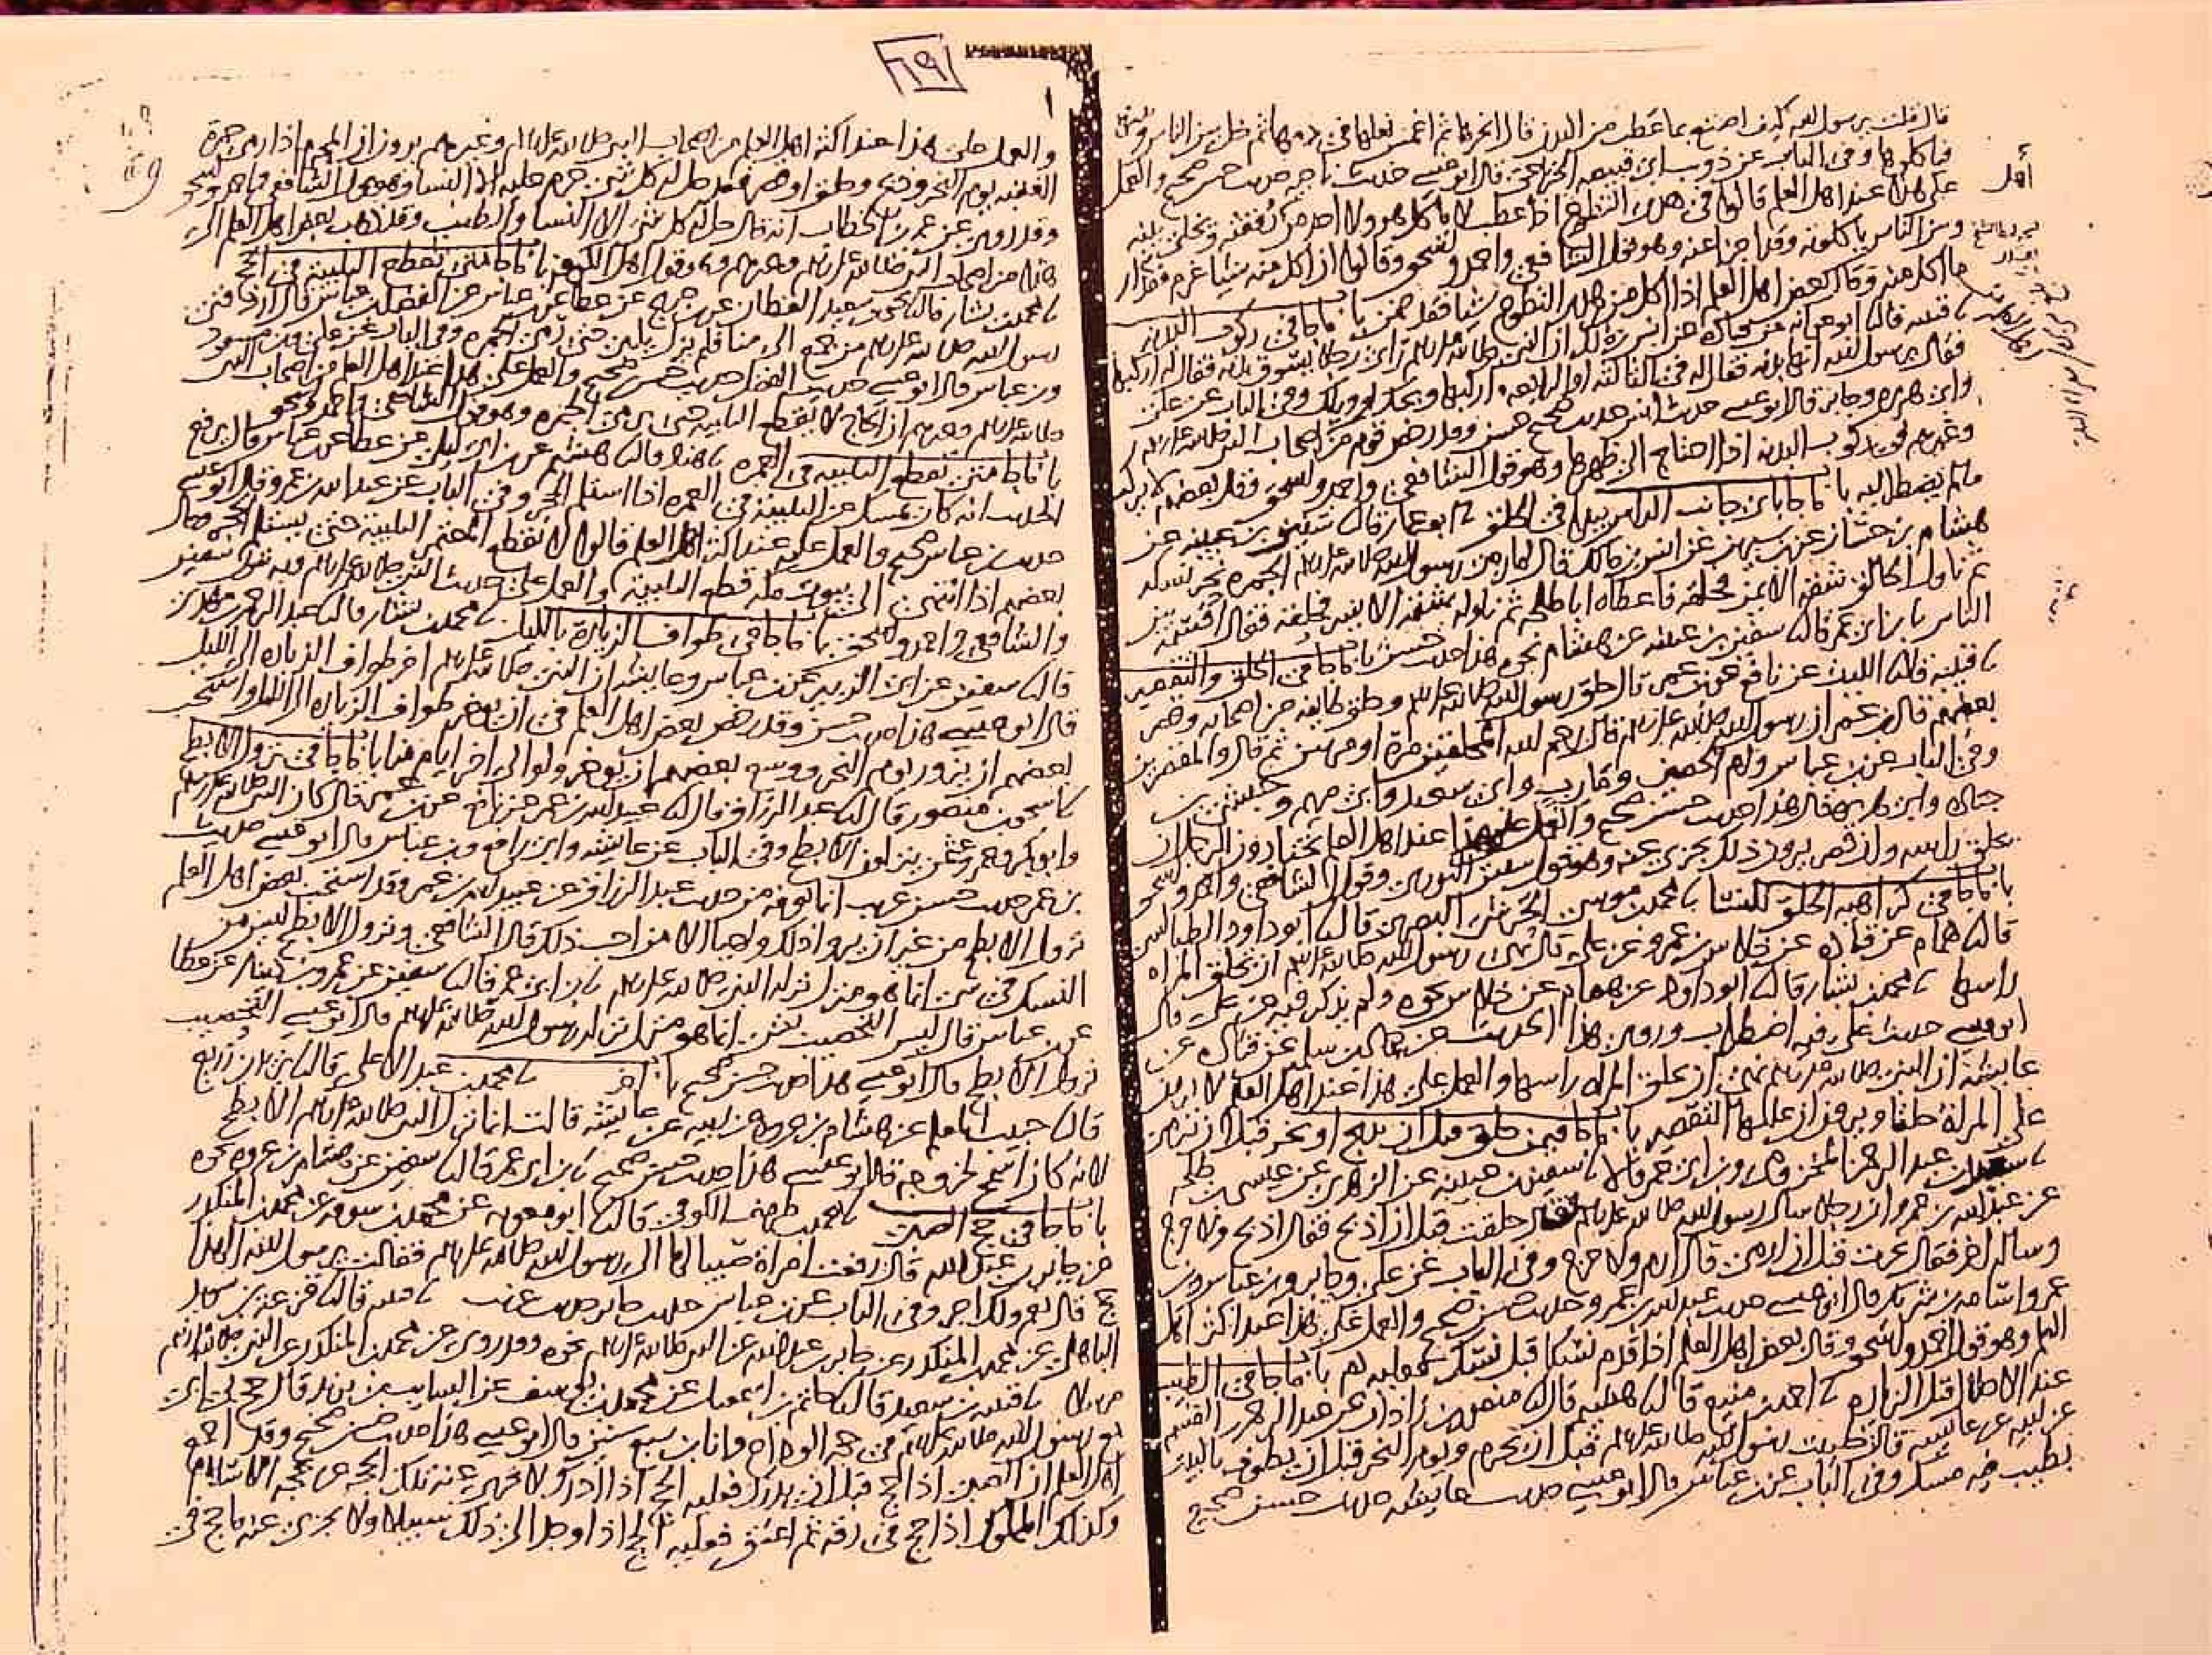 قال قلت يرسول الله كيف اصنع بما عطب من البدن قال انحرها ثم اغمس نعلها في دمها ثم خل بين الناس وبينها
فياكلوها وفي الباب عن ذويب ابي قبيصه الخزاعي قال ابو عيسى حديث ناجيه حديث حسن صحيح والعمل
على هذا عند اهل العلم قالوا في هدي التطوع اذا عطب لا ياكل هو ولا احد من رفقته ويخلى بينه
وبين الناس ياكلونه وقد اجزا عنه وهو قول الشافعي واحمد واسحق وقالوا ان اكل منه شيا غرم مقدار
ما اكل منه وقال بعض اهل العلم اذا اكل من هدي التطوع شيا فقد ضمن باب ما جا في ركوب البدنه
قتيبه قال ابو عوانه عن قتاده عن انس بن مالك ان النبي صلى الله عليه وسلم راى رجلا يسوق بدنه فقال له اركبها
فقال يرسول الله انها بدنه فقال له في الثالثه او الرابعه اركبها ويحك او ويلك وفي الباب عن علي
وابي هريره وجابر قال ابو عيسى حديث انس حديث صحيح حسن وقد رخص قوم من اصحاب النبي صلى الله عليه وسلم
وغيرهم في ركوب البدنه اذا احتاج الى ظهرها وهو قول الشافعي واحمد واسحق وقال بعضهم لا يركب
ما لم يضطر اليه باب ما جا باي جانب الراس يبدا في الحلق ابو عمار قال سفين بن عيينه عن
هشام بن حسان عن بن سيرين عن انس بن مالك قال لما رمى رسول الله صلى الله عليه وسلم الجمره نحر نسكه
ثم ناول الحالق شقه الايمن فحلقه فاعطاه ابا طلحه ثم ناوله شقه الايسر فحلقه فقال اقسمه بين
الناس ابن ابي عمر قال سفين بن عيينه عن هشام نحوه هذا حديث حسن باب ما جا في الحلق والتقصير
قتيبه قال الليث عن نافع عن بن عمر قال حلق رسول الله صلى الله عليه وسلم وحلق طايفه من اصحابه وقصر
بعضهم قال بن عمر ان رسول الله صلى الله عليه وسلم قال رحم الله المحلقين مرة او مرتين ثم قال والمقصرين
وفي الباب عن بن عباس وام الحصين وقارب وابي سعيد وابي مريم وحبشي بن
جناده وابي هريره قال هذا حديث حسن صحيح والعمل على هذا عند اهل العلم يختارون الرجل ان
يحلق راسه وان قصر يرون ذلك يجزي عنه وهو قول سفين الثوري وقول الشافعي واحمد واسحق
باب ما جا في كراهيه الحلق للنسا محمد بن موسى الجرشي البصري قال ابو داود الطيالسي
قال همام عن قتاده عن خلاس بن عمرو عن علي قال نهى رسول الله صلى الله عليه وسلم ان تحلق المراه
راسها محمد بن بشار قال ابو داود عن همام عن خلاس نحوه ولم يذكر فيه عن علي قال
ابو عيسى حديث علي فيه اضطراب وروي هذا الحديث عن حماد بن سلمه عن قتاده عن
عايشه ان النبي صلى الله عليه وسلم نهى ان تحلق المراه راسها والعمل على هذا عند اهل العلم لا يرون
على المراة حلقا ويرون ان عليها التقصير باب ما جا فيمن حلق قبل ان يذبح او نحر قبل ان يرمي
سعيد بن عبد الرحمن المخزومي وبن ابي عمر قالا سفين بن عيينه عن الزهري عن عيسى بن طلحه
عن عبد الله بن عمرو ان رجلا سال رسول الله صلى الله عليه وسلم فقال حلقت قبل ان اذبح فقال اذبح ولا حرج
وساله اخر فقال نحرت قبل ان ارمي قال ارم ولا حرج وفي الباب عن علي وجابر وبن عباس وبن
عمر واسامه بن شريك قال ابو عيسى حديث عبد الله بن عمرو حديث حسن صحيح والعمل على هذا عند اكثر اهل
العلم وهو قول احمد واسحق وقال بعض اهل العلم اذا قدم نسكا قبل نسك فعليه دم باب ما جا في الطيب
عند الاحلال قبل الزياره احمد بن منيع قال هشيم قال منصور بن زاذان عن عبد الرحمن بن القسم
عن ابيه عن عايشه قالت طيبت رسول الله صلى الله عليه وسلم قبل ان يحرم ويوم النحر قبل ان يطوف بالبيت
بطيب فيه مسك وفي الباب عن بن عباس قال ابو عيسى حديث عايشه حديث حسن صحيح
اهل
٦٩
والعمل على هذا عند اكثر اهل العلم من اصحاب النبي صلى الله عليه وسلم وغيرهم يرون ان المحرم اذا رمى جمرة
العقبه يوم النحر وذبح وحلق او قصر فقد حل له كل شي حرم عليه الا النسا وهو قول الشافعي واحمد واسحق
وقد روي عن عمر بن الخطاب انه قال حل له كل شي الا النسا والطيب وقد ذهب بعض اهل العلم الى
هذا من اصحاب النبي صلى الله عليه وسلم وغيرهم وهو قول اهل الكوفه باب ما جا متى تقطع التلبيه في الحج
محمد بن بشار قال يحيى بن سعيد القطان عن بن جريج عن عطا عن بن عباس عن الفضل بن عباس قال اردفني
رسول الله صلى الله عليه وسلم من جمع الى منا فلم يزل يلبي حتى رمى الجمره وفي الباب عن علي وبن مسعود
وبن عباس قال ابو عيسى حديث الفضل حديث حسن صحيح والعمل على هذا عند اهل العلم من اصحاب النبي
صلى الله عليه وسلم وغيرهم ان الحاج لا يقطع التلبيه حتى يرمي الجمره وهو قول الشافعي واحمد واسحق
باب ما جا متى تقطع التلبيه في العمره هناد قال هشيم عن بن ابي ليلى عن عطا عن بن عباس قال يرفع
الحديث انه كان يمسك عن التلبيه في العمره اذا استلم الحجر وفي الباب عن عبد الله بن عمرو قال ابو عيسى
حديث بن عباس صحيح والعمل عليه عند اكثر اهل العلم قالوا لا يقطع المعتمر التلبيه حتى يستلم الحجر وقال
بعضهم اذا انتهى الى بيوت مكه قطع التلبيه والعمل على حديث النبي صلى الله عليه وسلم وبه يقول سفين
والشافعي واحمد واسحق باب ما جا في طواف الزيارة بالليل محمد بن بشار قال عبد الرحمن بن مهدي
قال سفين عن ابي الزبير عن بن عباس وعايشه ان النبي صلى الله عليه وسلم اخر طواف الزياره الى الليل
قال ابو عيسى هذا حديث حسن وقد رخص بعض اهل العلم في ان يوخر طواف الزياره الى الليل واستحب
بعضهم ان يزور يوم النحر ووسع بعضهم ان يوخر ولو الى اخر ايام منا باب ما جا في نزول الابطح
اسحق بن منصور قال عبد الرزاق قال عبيد الله بن عمر عن نافع عن بن عمر قال كان النبي صلى الله عليه وسلم
وابو بكر وعمر وعثمن ينزلون الابطح وفي الباب عن عايشه وابي رافع وبن عباس قال ابو عيسى حديث
بن عمر حديث حسن غريب انما نعرفه من حديث عبد الرزاق عن عبيد الله بن عمر وقد استحب بعض اهل العلم
نزول الابطح من غير ان يروا ذلك واجبا الا من احب ذلك قال الشافعي ونزول الابطح ليس من
النسك في شي انما هو منزل نزله النبي صلى الله عليه وسلم بن ابي عمر قال سفين عن عمرو بن دينار عن عطا
عن بن عباس قال ليس التحصيب بشي انما هو منزل نزله رسول الله صلى الله عليه وسلم قال ابو عيسى التحصيب
نزول الابطح قال ابو عيسى هذا حديث حسن صحيح باب اخر محمد بن عبد الاعلى قال يزيد بن زريع
قال حبيب المعلم عن هشام بن عروه عن ابيه عن عايشه قالت انما نزل النبي صلى الله عليه وسلم الابطح
لانه كان اسمح لخروجه قال ابو عيسى هذا حديث حسن صحيح بن ابي عمر قال سفين عن هشام بن عروه نحوه
باب ما جا في حج الصبي محمد بن طريف الكوفي قال ابو معويه عن محمد بن سوقه عن محمد بن المنكدر
عن جابر بن عبد الله قال رفعت امراة صبيا لها الى رسول الله صلى الله عليه وسلم فقالت يرسول الله الهذا
حج قال نعم ولك اجر وفي الباب عن بن عباس حديث جابر حديث غريب قتيبه قال قزعه بن سويد
الباهلي عن محمد بن المنكدر عن جابر بن عبد الله عن النبي صلى الله عليه وسلم نحوه وقد روي عن محمد بن المنكدر عن النبي صلى الله عليه وسلم
مرسلا قتيبه بن سعيد قال حاتم بن اسمعيل عن محمد بن يوسف عن السايب بن يزيد قال حج بي ابي
مع رسول الله صلى الله عليه وسلم في حجه الوداع وانا بن سبع سنين قال ابو عيسى هذا حديث حسن صحيح وقد اجمع
اهل العلم ان الصبي اذا حج قبل ان يدرك فعليه الحج اذا ادرك ولا تجزي عنه تلك الحجه عن حجه الاسلام
وكذلك المملوك اذا حج في رقه ثم اعتق فعليه الحج اذا وجد الى ذلك سبيلا ولا يجزي عنه ما حج في